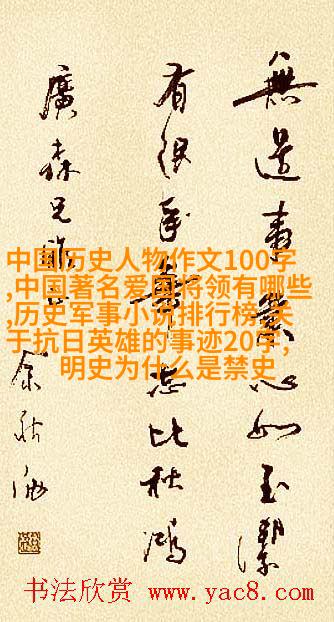 無道事心如玉潔
有志比秋鴻
廣森兄
中国历史人物作文100字
,中国著名爱国将领有哪些
,历史军事小说排行榜,关
于抗日英雄的事迹20字,
明史为什么是禁史
书法欣赏 www.yac8.com